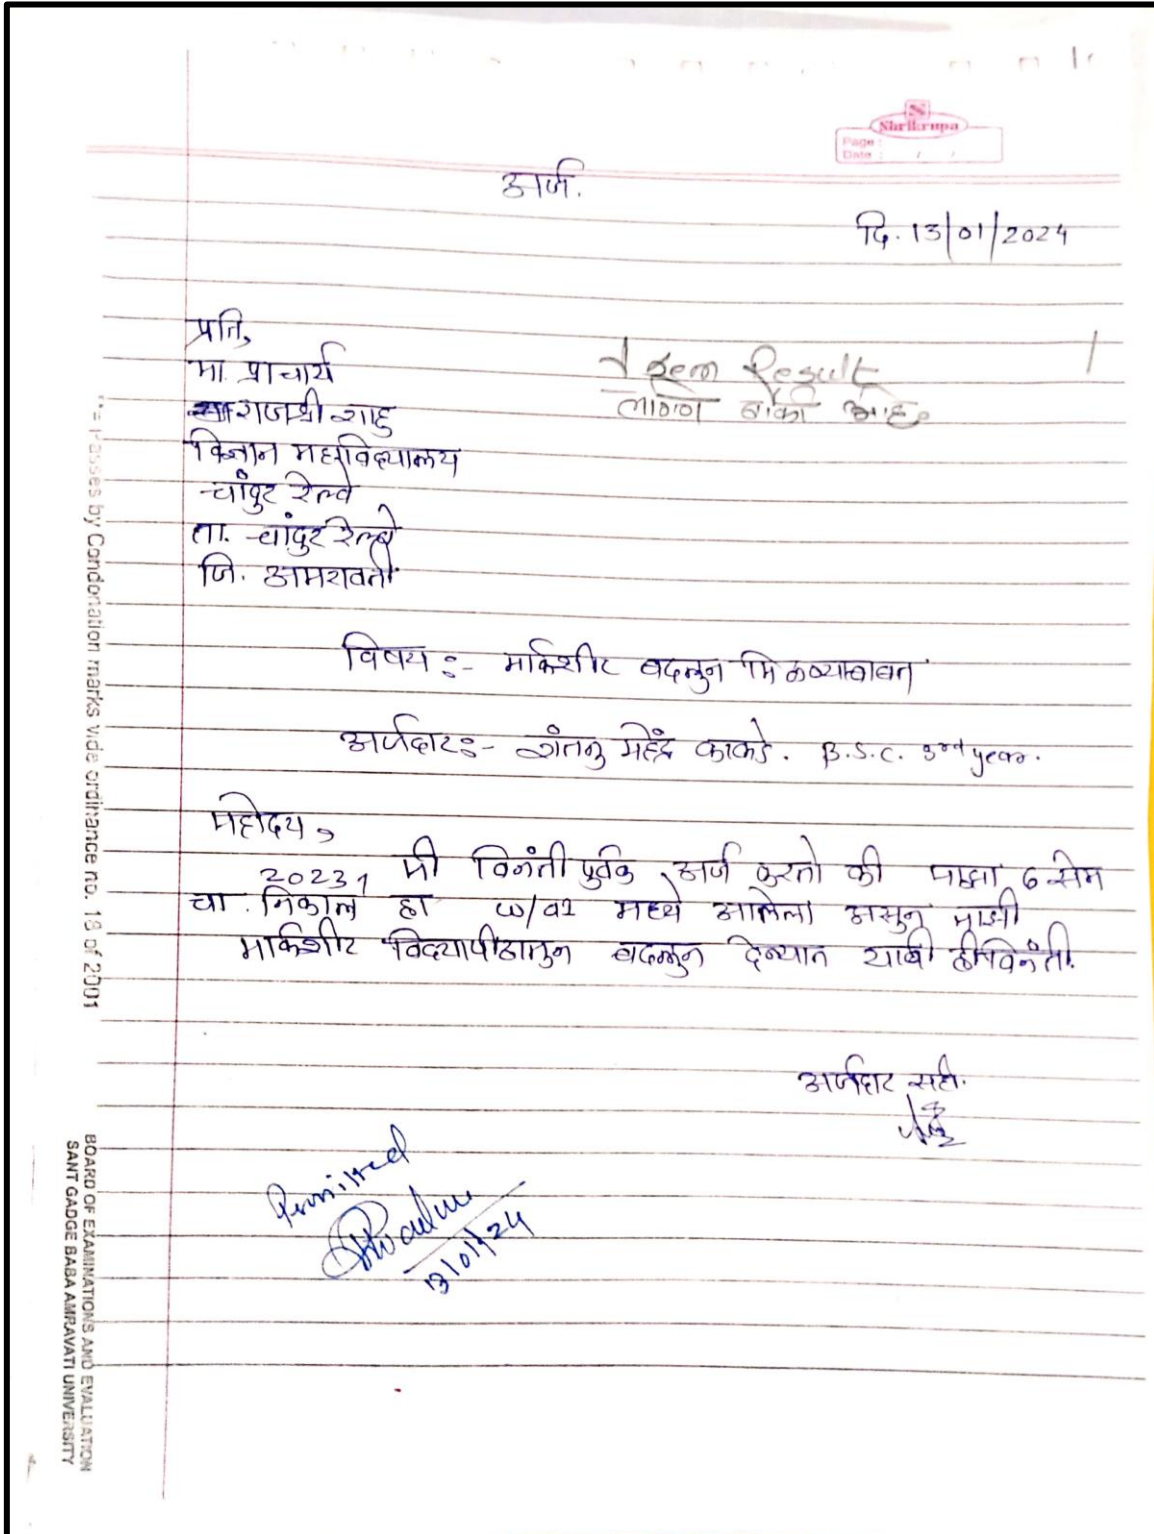 Shrikrupa
Page :
Date : / /
अर्ज.
दि. 13/01/2024
प्रति,
मा. प्राचार्य
राजश्री शाहु
विज्ञान महाविद्यालय
चांदुर रेल्वे
ता. चांदुर रेल्वे
जि. अमरावती
1 sem Result
लागणे बाकी आहे
विषय :- मार्कशीट बदलुन मिळण्याबाबत
अर्जदार :- शंतनु महेंद्र काकडे. B.S.C. 3rd year.
महोदय,
मी विनंती पुर्वक अर्ज करतो की माझा 6 सेम
2023,
चा निकाल हा w/a2 मध्ये आलेला असुन माझी
मार्कशीट विद्यापीठातुन बदलुन देण्यात यावी ही विनंती.
अर्जदार सही.
Permitted
13/01/24
Passes by Condonation marks vide ordinance no. 18 of 2001
BOARD OF EXAMINATIONS AND EVALUATION
SANT GADGE BABA AMRAVATI UNIVERSITY